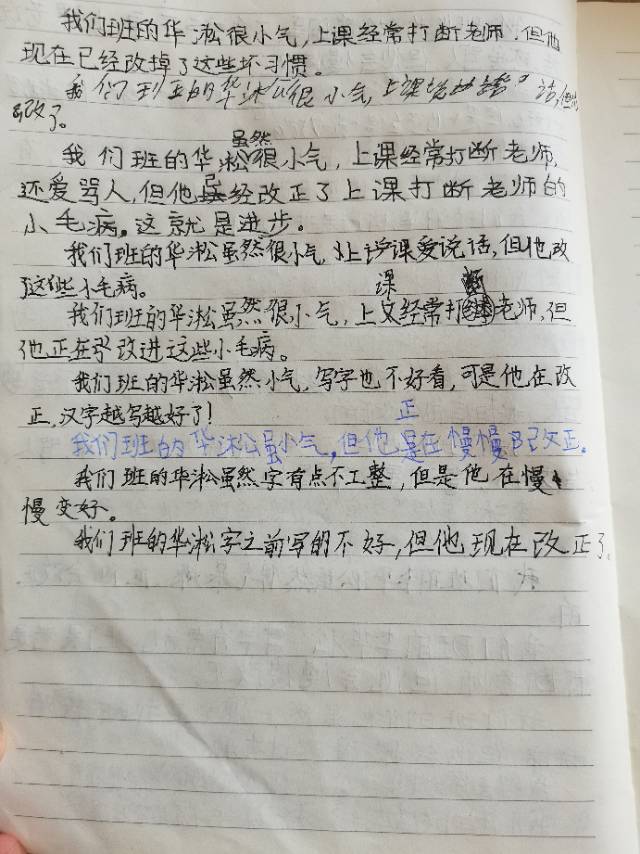 我们班的华淞很小气,上课经常打断老师.但他
现在已经改掉了这些坏习惯。
我们班的华淞很小气,上课
改了。
虽然
我们班的华淞很小气,上课经常打断老师,
还爱骂人,但他已经改正了上课打断老师的
小毛病。这就是进步。
我们班的华淞虽然很小气,上课爱说话,但他改
这些小毛病。
课 断
我们班的华淞虽然很小气,上又经常打老师,但
他正在改进这些小毛病。
我们班的华淞虽然小气,写字也不好看,可是他在改
正,汉字越写越好了!
正
我们班的华淞虽小气,但他是在慢慢自己改正。
我们班的华淞虽然字有点不工整,但是他在慢
慢变好。
我们班的华淞字之前写的不好,但他现在改正了。